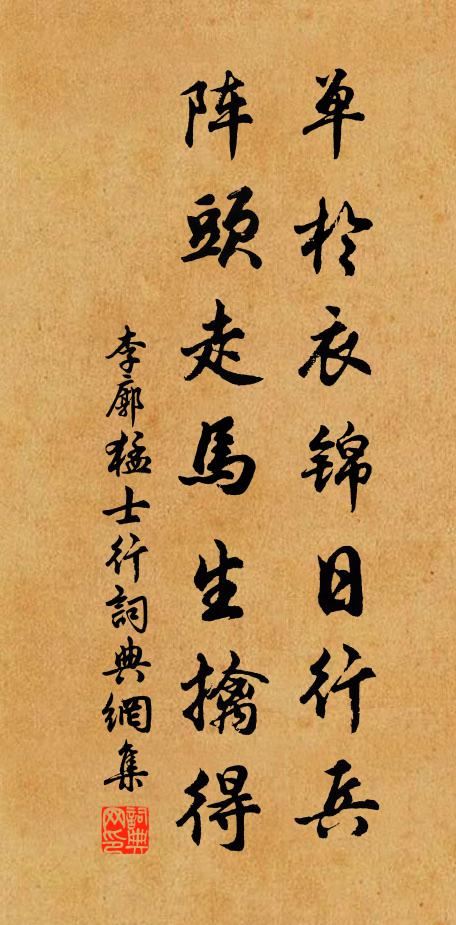 单於衣锦日行兵
阵頭走馬生擒得
李廓猛士行詞典網集
詞典网印